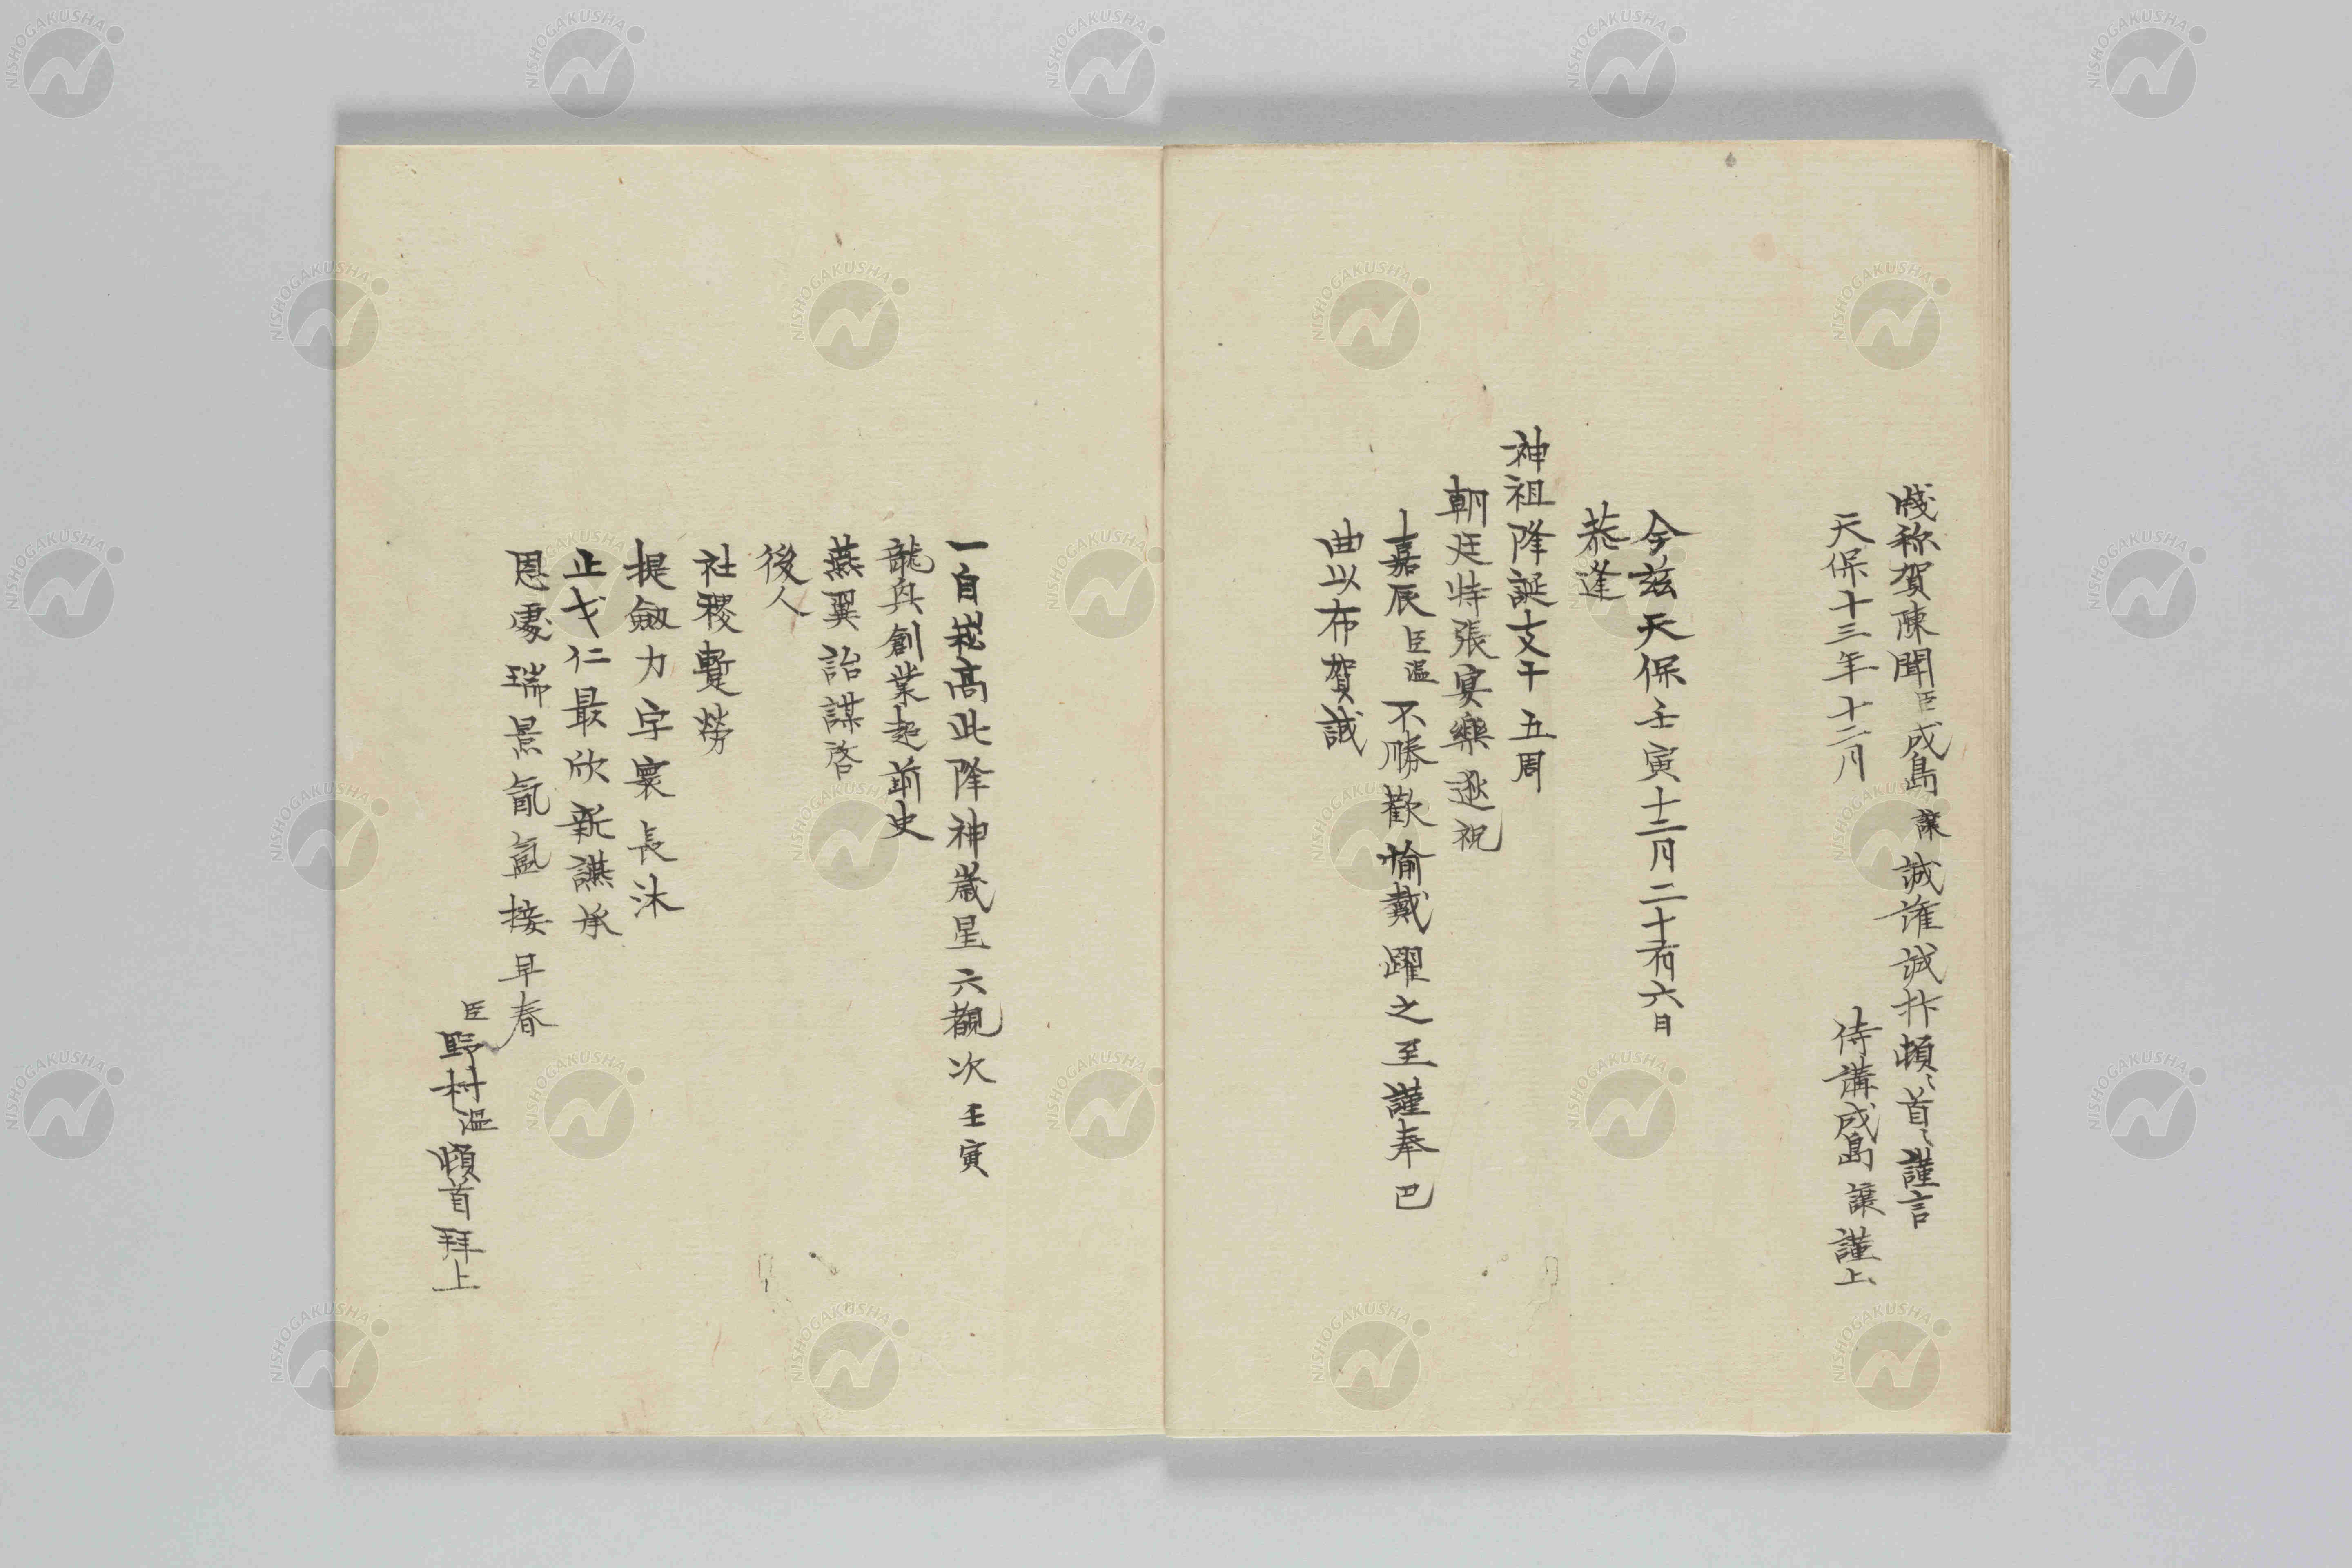 牋称賀陳聞臣成島譲誠讙誠抃頓〻首〻謹言
天保十三年十二月　侍講成島譲謹上
今茲天保壬寅十二月二十有六日
恭逢
神祖降誕支干五周
朝廷特張宴樂逖祝
嘉辰臣温不勝歡愉戴躍之至謹奉巴
曲以布賀誠
一自崧高此降神歳星六覯次壬寅
龍興創業起前史
燕翼詒謀啓
後人
社稷蹔勞
提劔力宇寰長沐
止戈仁最欣新讌承
恩處瑞景氤氳接早春
臣野村温頓首拜上
NISHOGAKUSHA